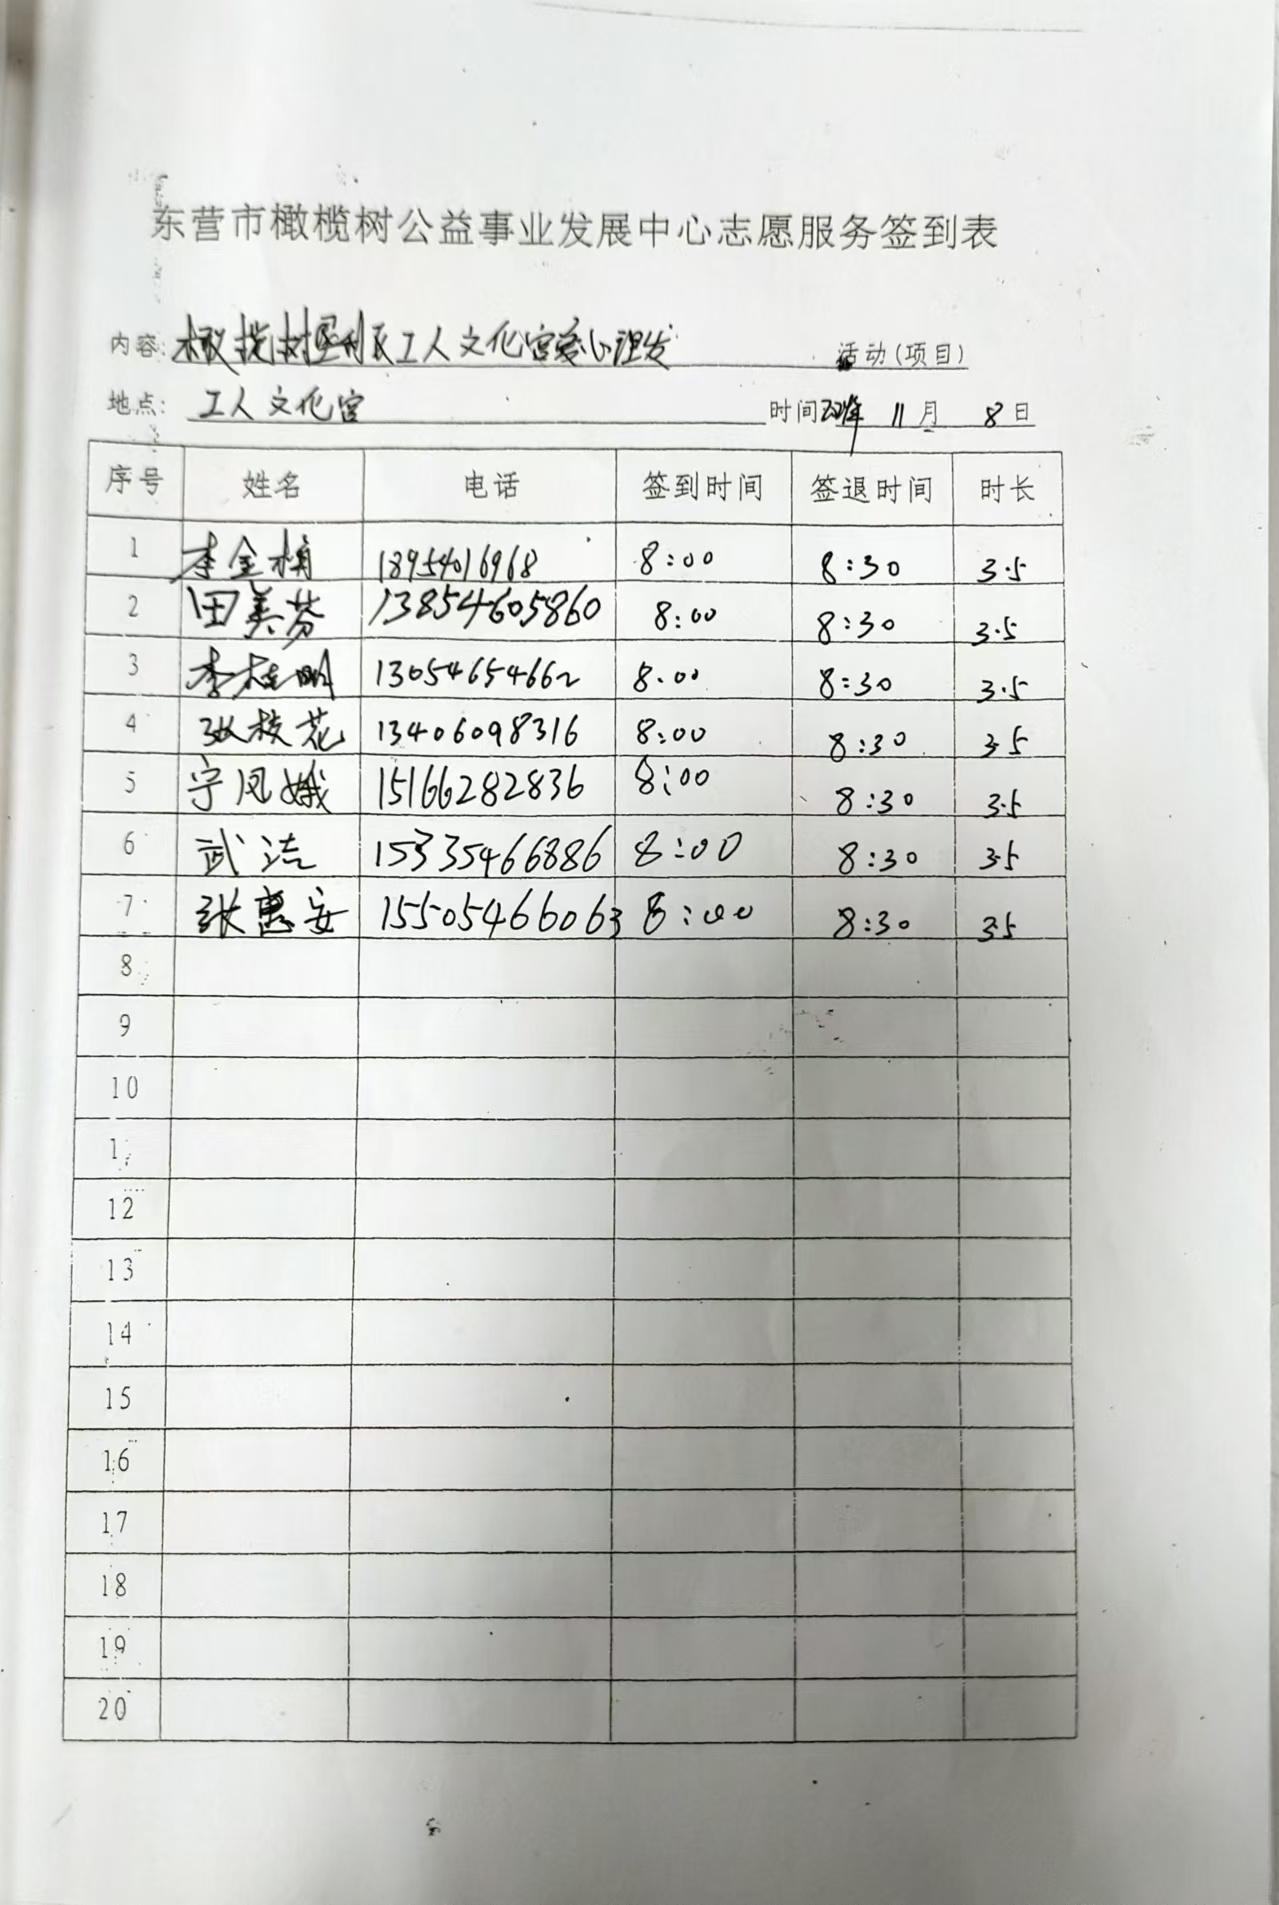 东营市橄榄树公益事业发展中心志愿服务签到表
内容: 橄榄树垦利区工人文化宫爱心理发 活动(项目)
地点: 工人文化宫 时间 年 11月 8日
序号 姓名 电话 签到时间 签退时间 时长
1 李金梅 18954016968 8:00 8:30 3.5
2 田美芬 13854605860 8:00 8:30 3.5
3 李桂明 13054654662 8:00 8:30 3.5
4 张枝花 13406098316 8:00 8:30 3.5
5 宁凤娥 15166282836 8:00 8:30 3.5
6 武洁 15335466886 8:00 8:30 3.5
7 张惠安 15505466063 8:00 8:30 3.5
8
9
10
1
12
13
14
15
16
17
18
19
20